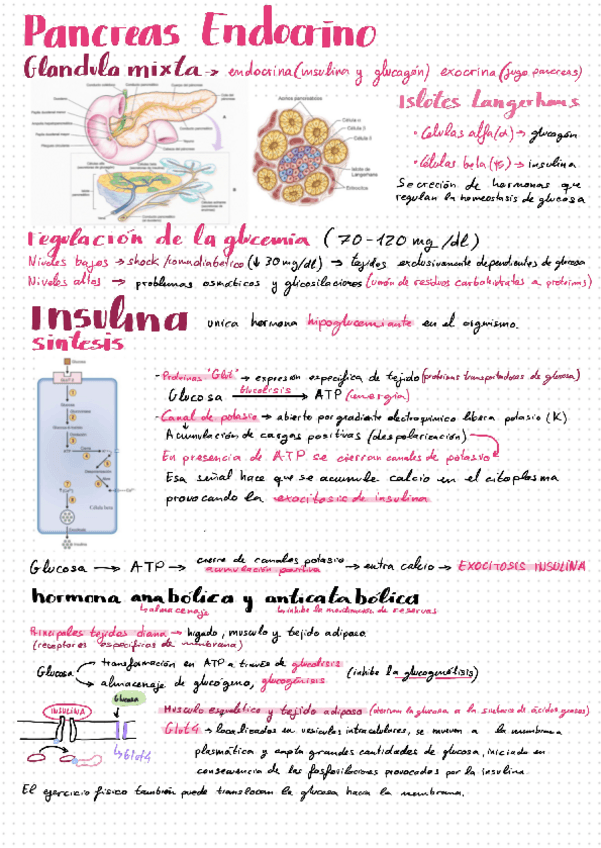 Pancreas Endocrino
Glandula mixta → endocrina (insulina y glucagón) exocrina (jugo pancreas)
Islotes Langerhans
· Células alfa (α) → glucagón
· Células beta (β) → insulina
Secreción de hormonas que
regulan la homeostasis de glucosa
Acinos pancreáticos
Célula α
Célula β
Célula δ
Islote de
Langerhans
Eritrocitos
regulación de la glucemia (70-120 mg/dl)
Niveles bajos → shock/comadiabético (↓ 30 mg/dl) → tejidos exclusivamente dependientes de glucosa
Niveles altos → problemas osmóticos y glicosilaciones (unión de residuos carbohidratos a proteínas)
Insulina unica hormona hipoglucemiante en el organismo.
sintesis
Glucosa
GLUT 2
Célula beta
Insulina
- Proteinas 'Glut' → expresión especifica de tejido (proteinas transportadoras de glucosa)
Glucosa Glucolisis → ATP (energía)
- Canal de potasio → abierto por gradiente electroquimico libera potasio (K)
Acumulación de cargas positivas (despolarización)
En presencia de ATP se cierran canales de potasio
Esa señal hace que se acumule calcio en el citoplasma
provocando la exocitosis de insulina
Glucosa → ATP → cierre de canales potasio acumulación positiva → entra calcio → EXOCITOSIS INSULINA
hormona anabólica y anticatabólica
↳ almacenaje ↳ inhibe la movilización de reservas
Principales tejidos diana → higado, musculo y tejido adiposo
(receptores especificos de membrana)
Glucosa
transformación en ATP a través de glucolisis
almacenaje de glucógeno, glucogénisis
(inhibe la glucogenólisis)
INSULINA
Glucosa
↳ Glot4
Musculo esquelético y tejido adiposo (derivan la glucosa a la sintesis de ácidos grasos)
Glot4 → localizados en vesiculas intracelulares, se mueven a la membrana
plasmática y capta grandes cantidades de glucosa, iniciado en
consecuencia de las fosforilaciones provocadas por la insulina.
El ejercicio fisico tambien puede translocan la glucosa hacia la membrana.